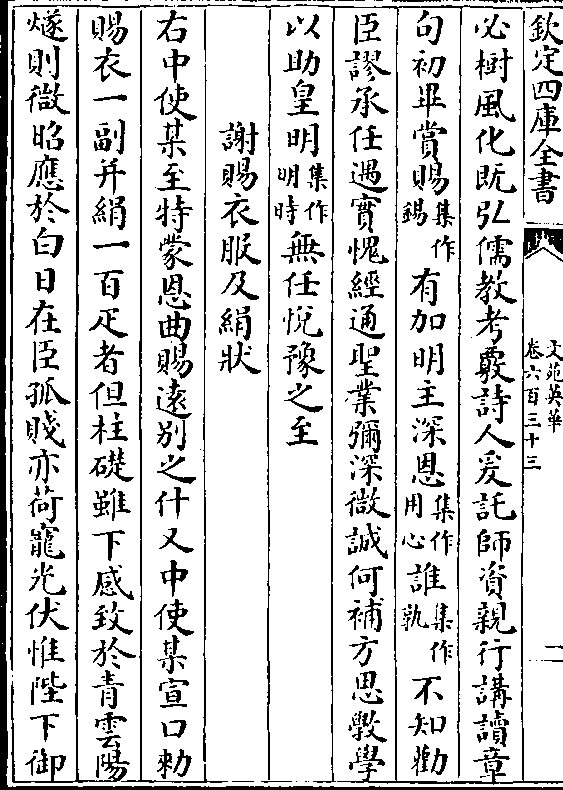 欽定四庫全書
文苑英華
卷六百三十三
二
必樹風化既弘儒教考覈詩人爰託師資親行講讀章
句初畢賞賜集作錫有加明主深恩集作用心誰集作孰不知勸
臣謬承任遇實愧經通聖業彌深微誠何補方思斆學
以助皇明集作明時無任悅豫之至
謝賜衣服及絹狀
右中使某至特蒙恩曲賜遠別之什又中使某宣口勅
賜衣一副并絹一百疋者但柱礎雖下感致於青雲陽
燧則微昭應於白日在臣孤賤亦荷寵光伏惟陛下御